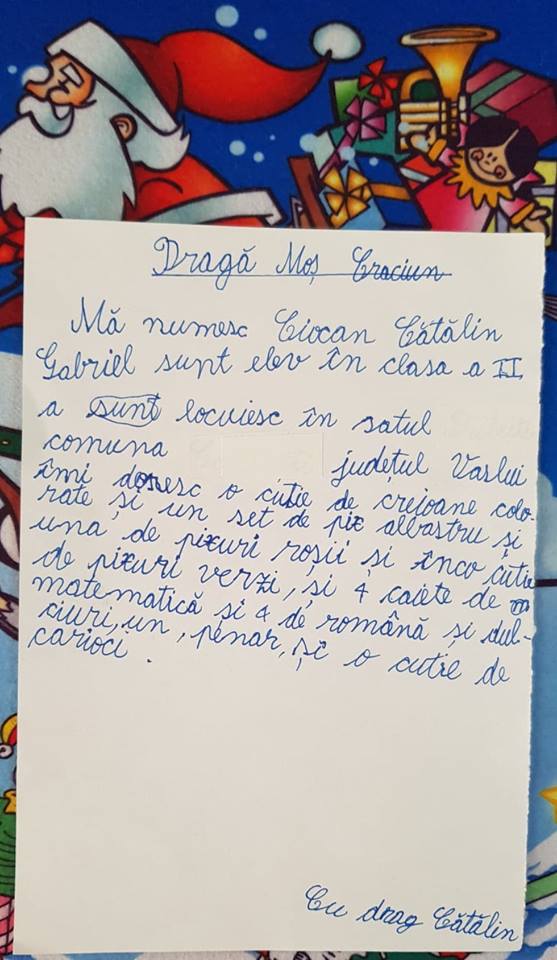 Dragă Moș Craciun
Mă numesc Ciocan Cătălin
Gabriel sunt elev în clasa a II
a sunt locuiesc în satul
comuna județul Vaslui
îmi doresc o cutie de creioane colo-
rate și un set de pix albastru și
una de pixuri roșii și înco cutie
de pixuri verzi, și 4 caiete de m
matematică și 4 de română și dul-
ciuri, un, penar, și o cutie de
carioci.
Cu drag Cătălin